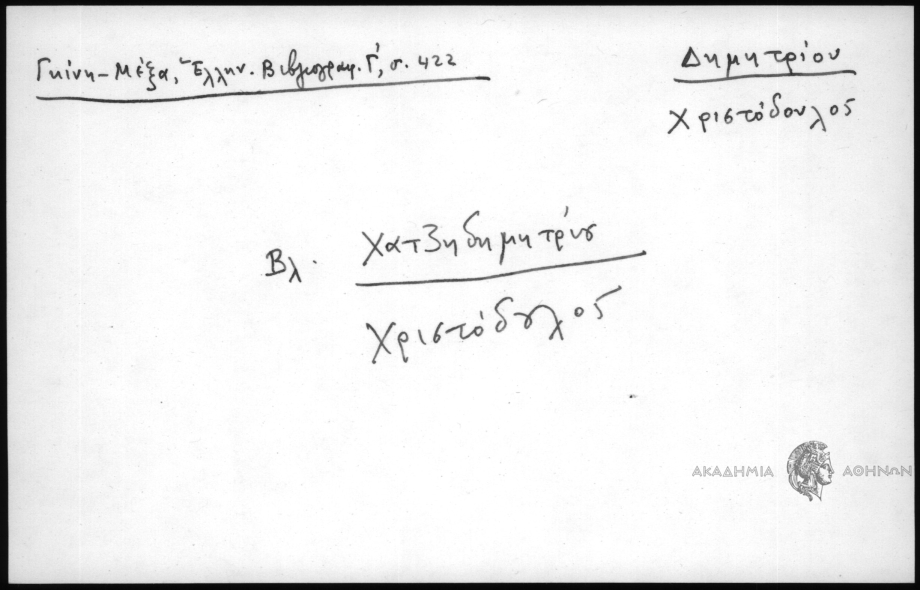 Γκίνη-Μέξα, Ἑλλην. Βιβλιογραφ. Γ', σ. 422
Δημητρίου
Χριστόδουλος
Βλ. Χατζηδημητρίου
Χριστόδουλος
ΑΚΑΔΗΜΙΑ ΑΘΗΝΩΝ